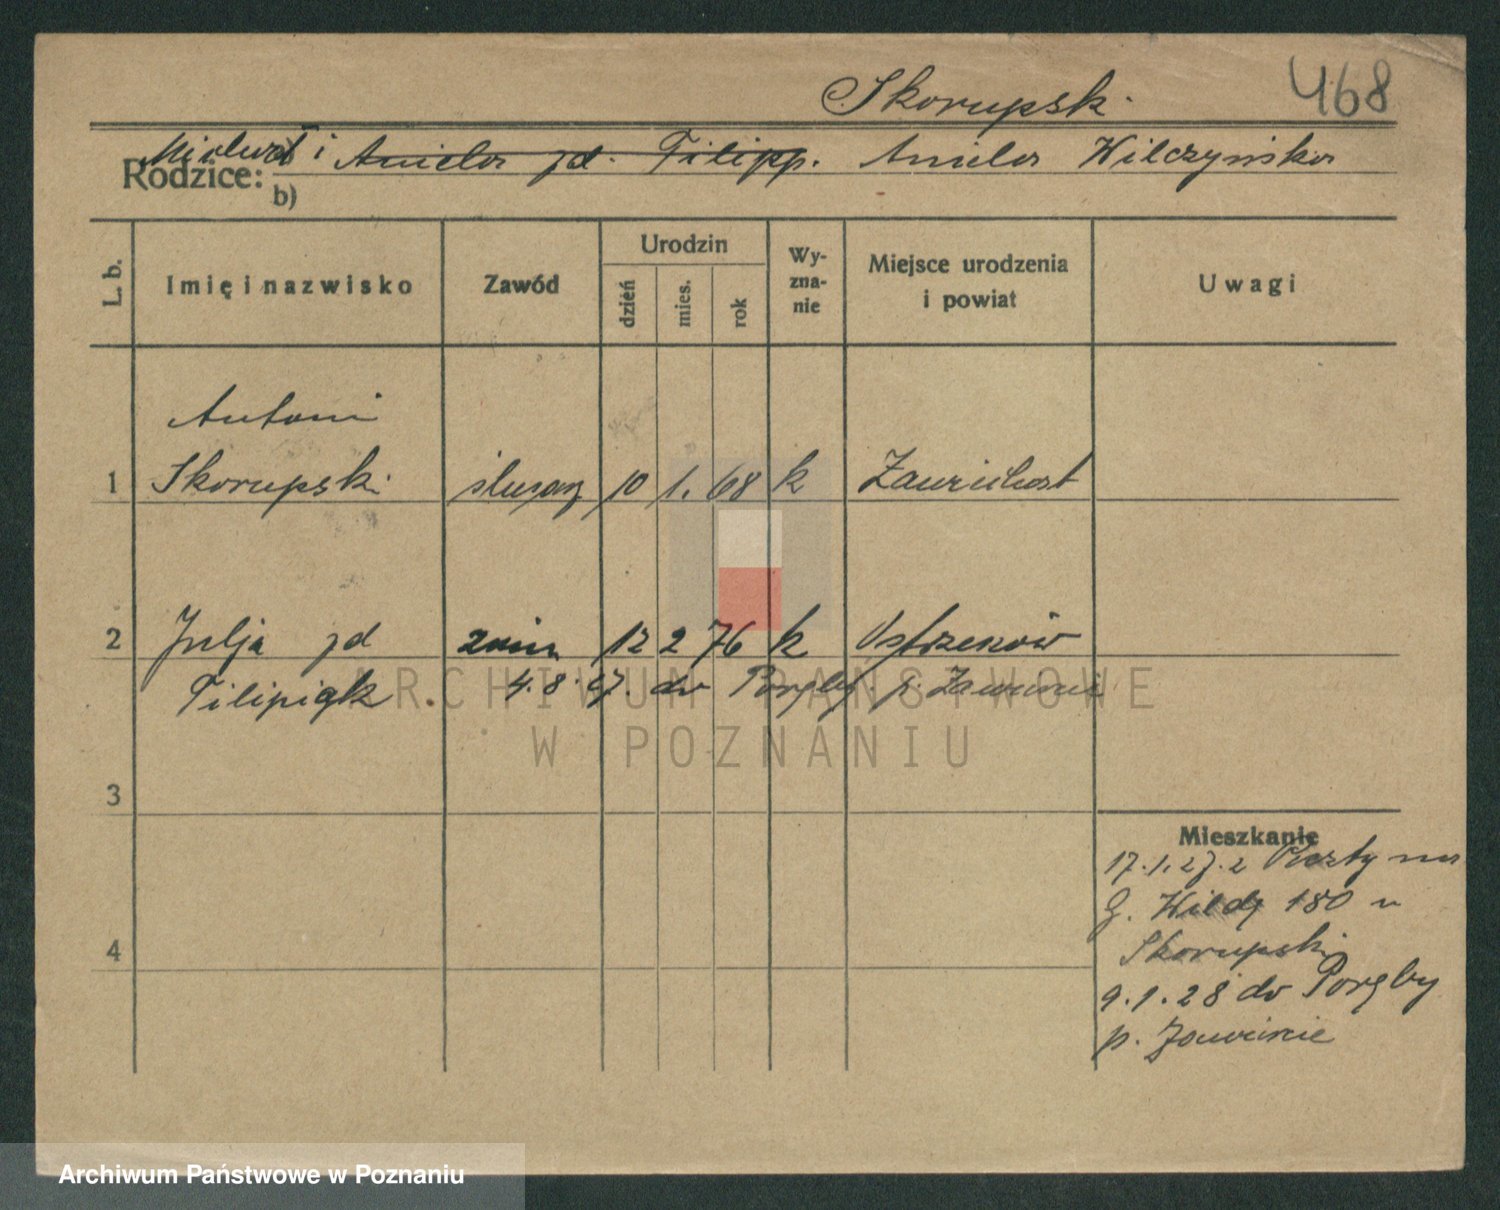 Skorupski
468
Michał i Aniela zd. Filipp. Aniela Wilczyńska
Rodzice:
b)
L. b.
Imię i nazwisko
Zawód
Urodzin
dzień
mies.
rok
Wy-
zna-
nie
Miejsce urodzenia
i powiat
Uwagi
Antoni
1 Skorupski ślusarz 10 1. 68 k Zawichost
2 Julja zd 12 2 76 k Ostrzeszów
Filipiak 4.8.27. do Poręby p. Zawiercie
ARCHIWUM PAŃSTWOWE
W POZNANIU
3
Mieszkanie
17.1.27. z
G. Wilda 180 u
4
Skorupski
9.1.28 do Poręby
p. Zawiercie
Archiwum Państwowe w Poznaniu